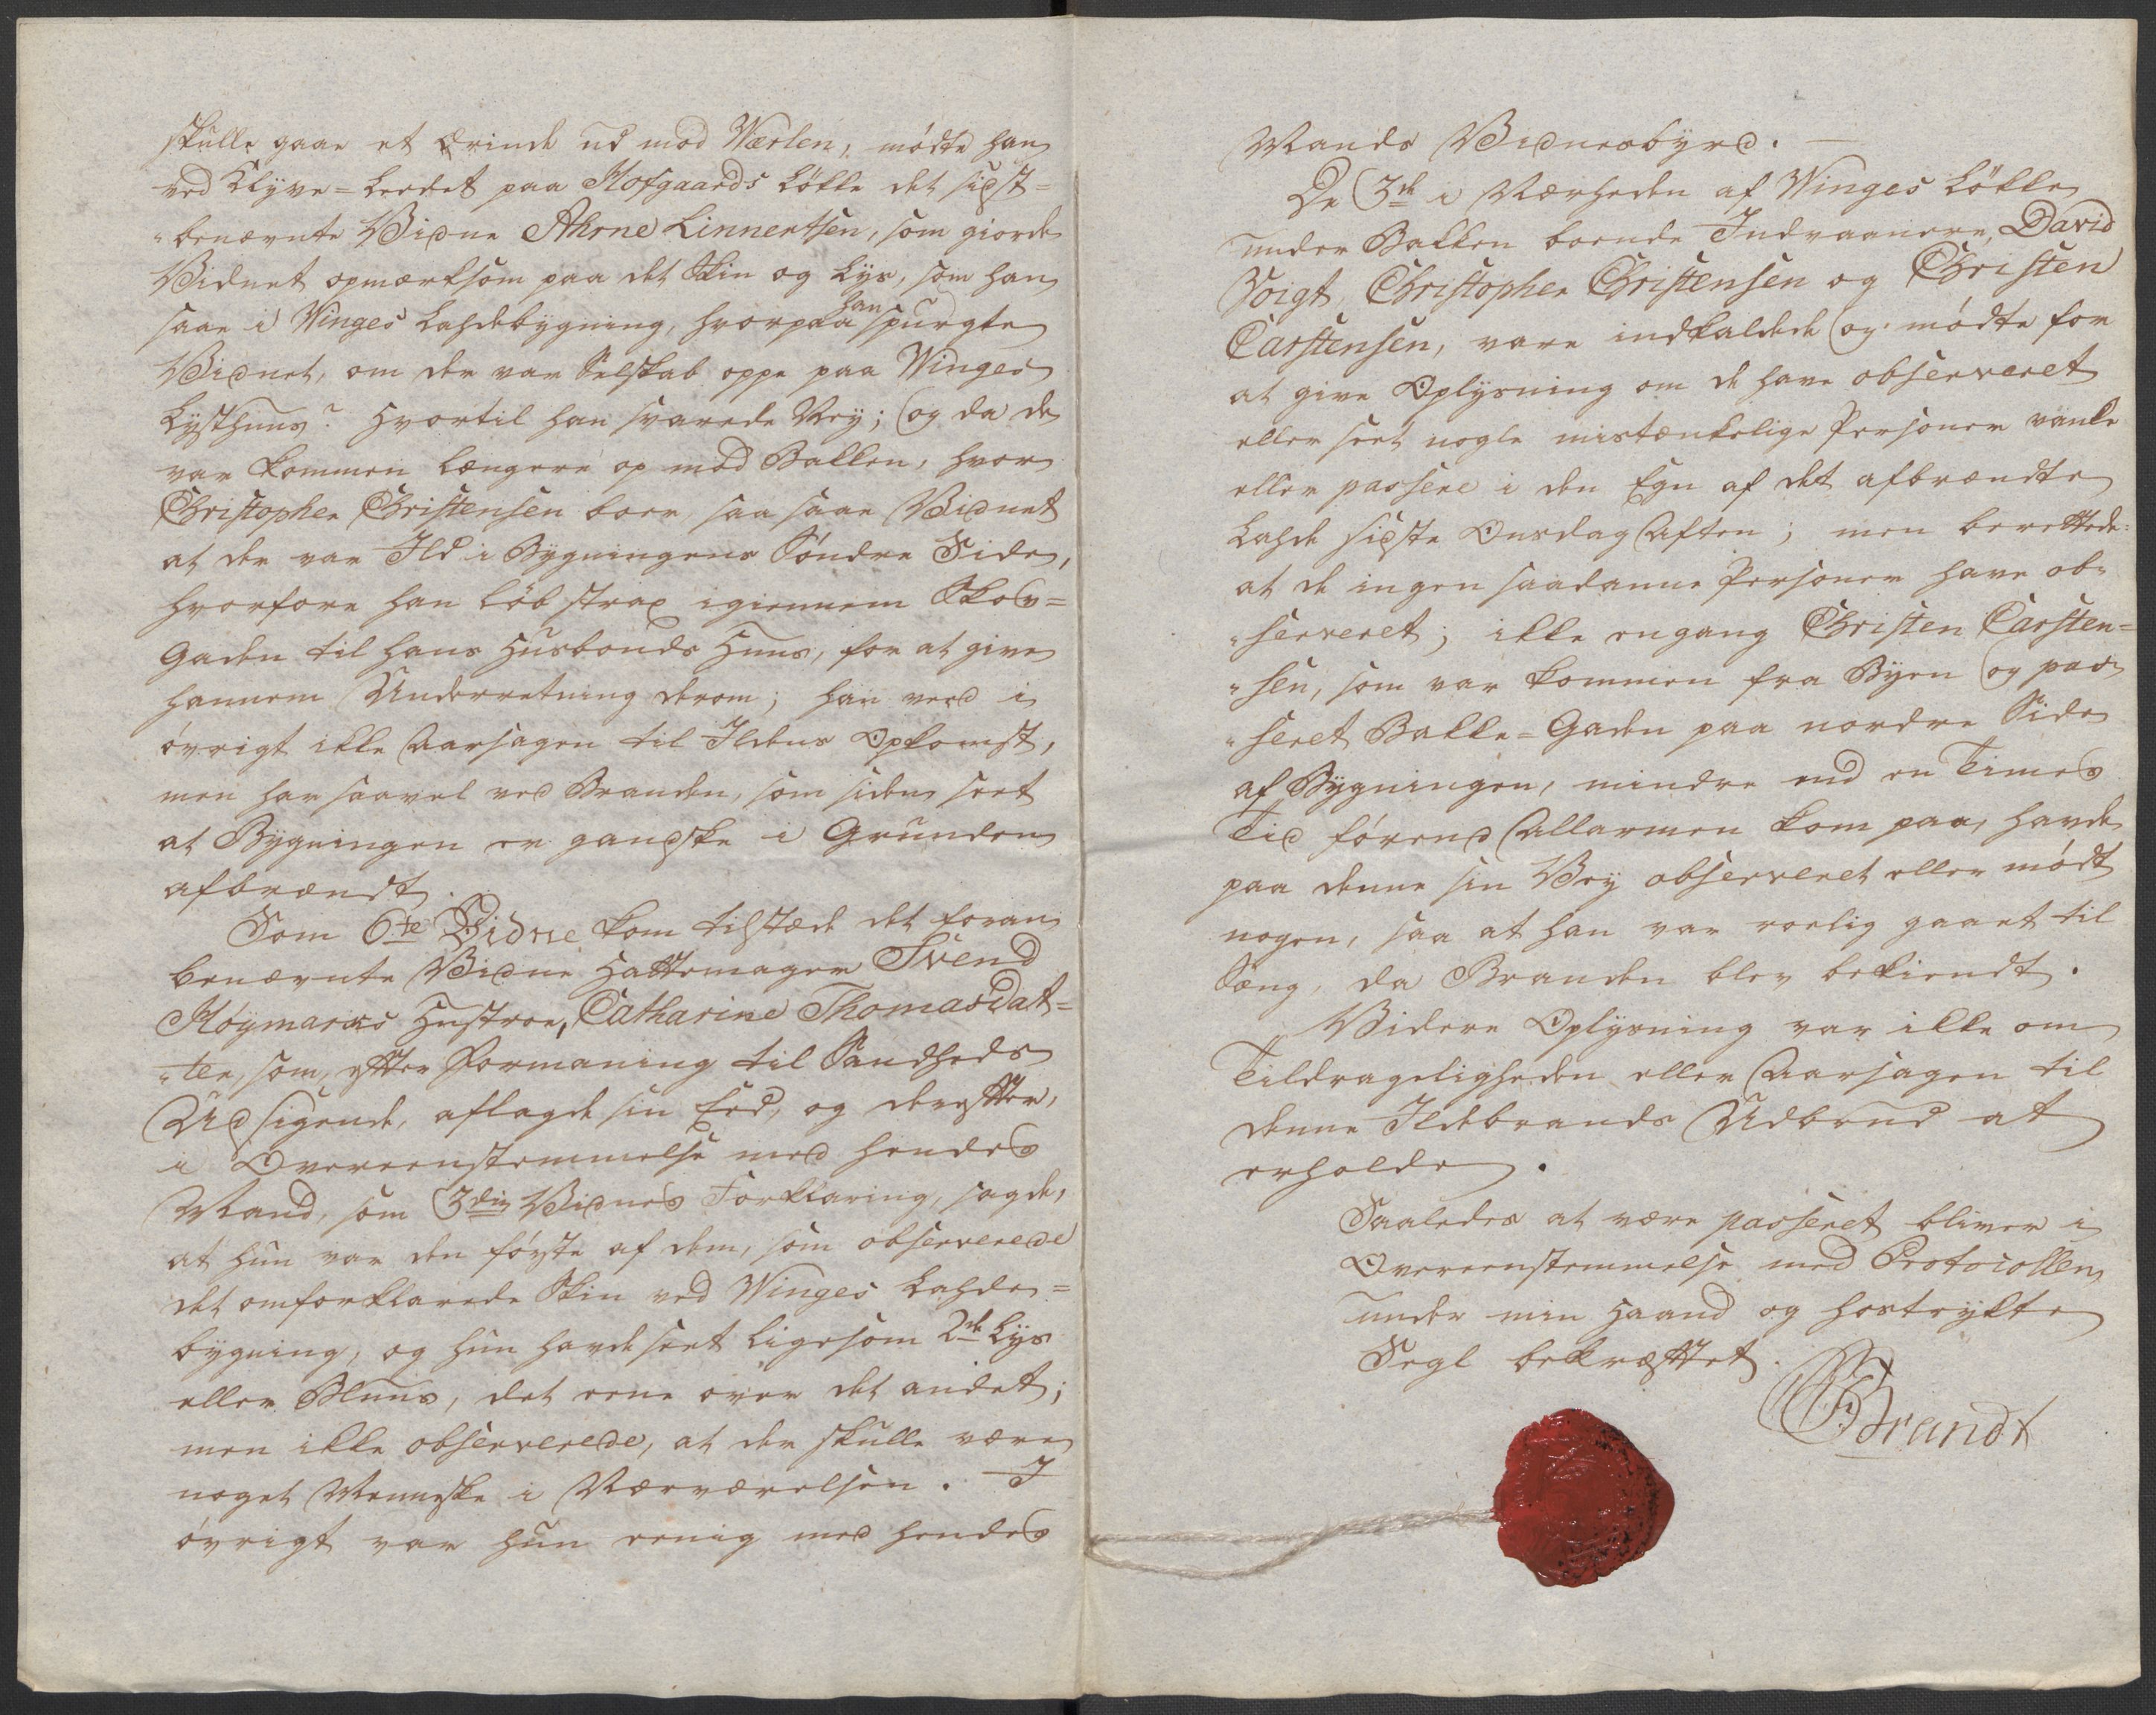 skulle gaae et Ærinde ud mod Wærlen, mødte han
ved Klyve-Leedet paa Hofgaards Løkke det sidst-
benævnte Vidne Ahrne Linnertsen, som giorde
Vidnet opmærksom paa det Skin og Lys, som han
saae i Winges Ladebygning, hvorpaa han spurgte
Vidnet, om der var Selskab oppe paa Winges
Lysthuus? hvortil han svarede Ney; og da de
var kommen længere op mod Bakken, hvor
Christopher Christensen boer, saa saae Vidnet
at der var Ild i Bygningens Søndre Side,
hvorfore han løb strax igiennem Skov=
Gaden til hans Huusbonds Huus, for at give
hannem Underretning derom; han veed i
øvrigt ikke Aarsagen til Ildens Opkomst,
men har saavel ved Branden, som siden seet
at Bygningen er gandske i Grunden
afbrændt.
Som 6te Vidne kom tilstæde det foran
benævnte Vidne Hattemager Svend
Høymarks Hustroe, Catharine Thomasdat=
ter, som, efter Formaning til Sandheds
Udsigende, aflagde sin Eed, og derefter,
i Overeenstemmelse med hendes
Mand, som 3die Vidnes Forklaring, sagde,
at hun var den første af dem, som observerede
det omforklarede Skin ved Winges Lahde=
bygning, og hun havde seet ligesom 2de Lys
eller Bluus, det eene over det andet;
men ikke observerede, at der skulle være
noget Menneske i Nærværelsen. I
øvrigt var hun eenig med hendes
Mands Vidnesbyrd. —
De 3de i Nærheden af Winges Løkke
under Bakken boende Indvaanere, David
Voigt, Christopher Christensen og Christen
Carstensen, vare indkaldede og mødte for
at give Oplysning om de have observeret
eller seet nogle mistænkelige Personer vanke
eller passere i den Egn af det afbrændte
Lahde sidste Onsdag Aften; men berettede
at de ingen saadanne Personer have ob=
serveret; ikke engang Christen Carsten=
sen, som var kommen fra Byen og pas=
seret Bakke=Gaden paa nordre Side
af Bygningen, mindre end en Times
Tid førend Allarmen kom paa, havde
paa denne sin Vey observeret eller mødt
nogen, saa at han var roelig gaaet til
Sæng, da Branden blev bekiendt.
Videre Oplysning var ikke om
Tildrageligheden eller Aarsagen til
denne Ildebrands Udbrud at
erholde.
Saaledes at være passeret bliver i
Overeenstemmelse med Protocollen
under min Haand og hostrykte
Segl bekræftet.
Brandt